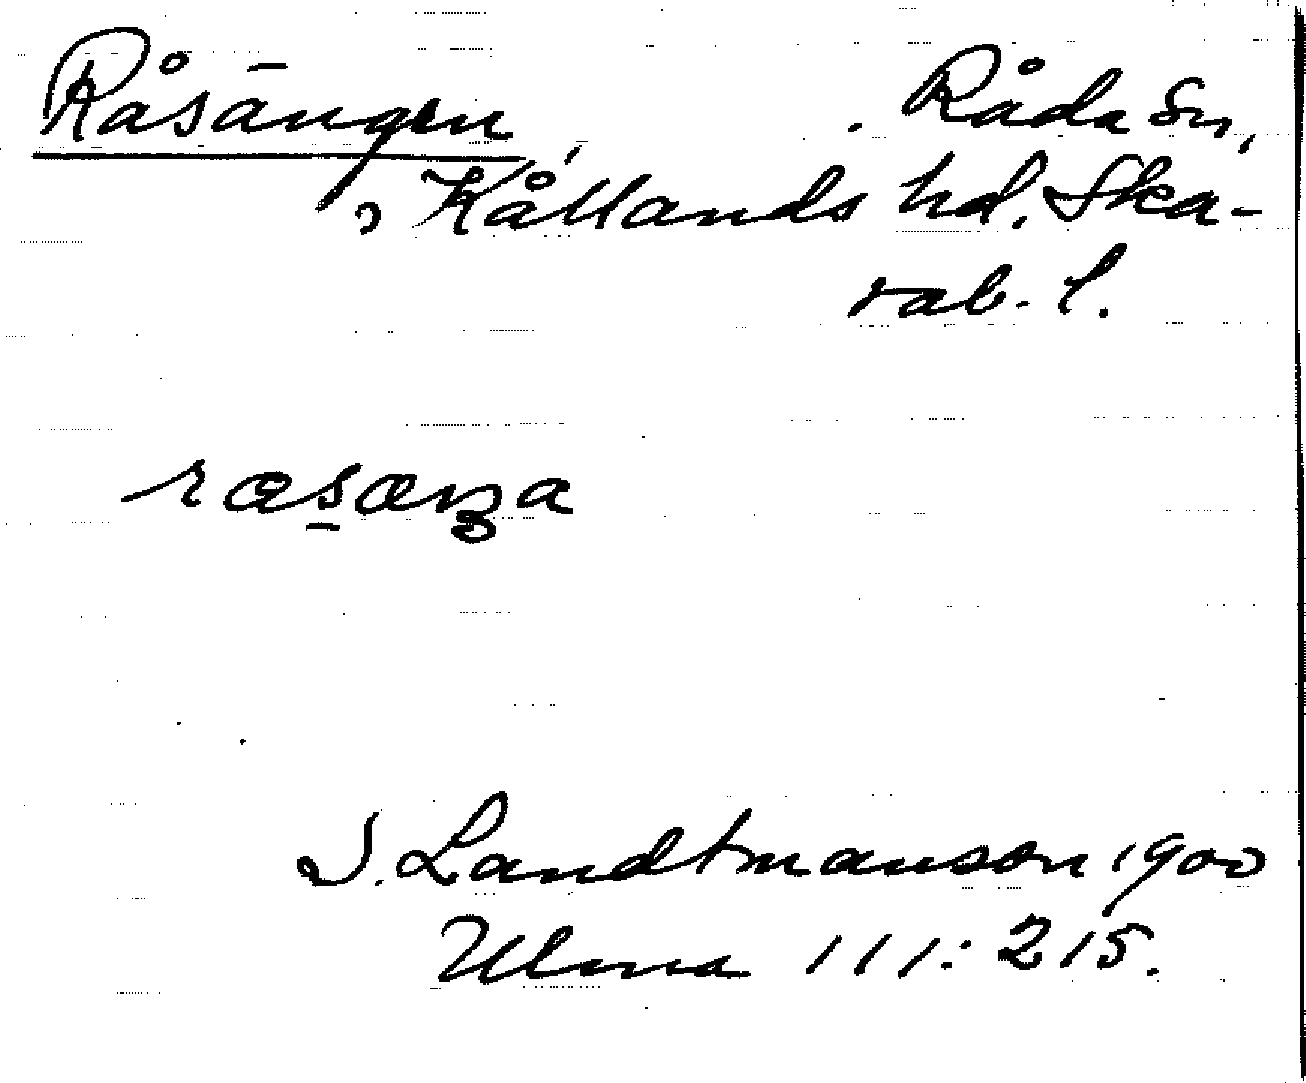 Råsängen, Råda Sn,
Kållands hd. Ska-
rab. l.
I. Landtmanson 1900
Ulma 111:215.